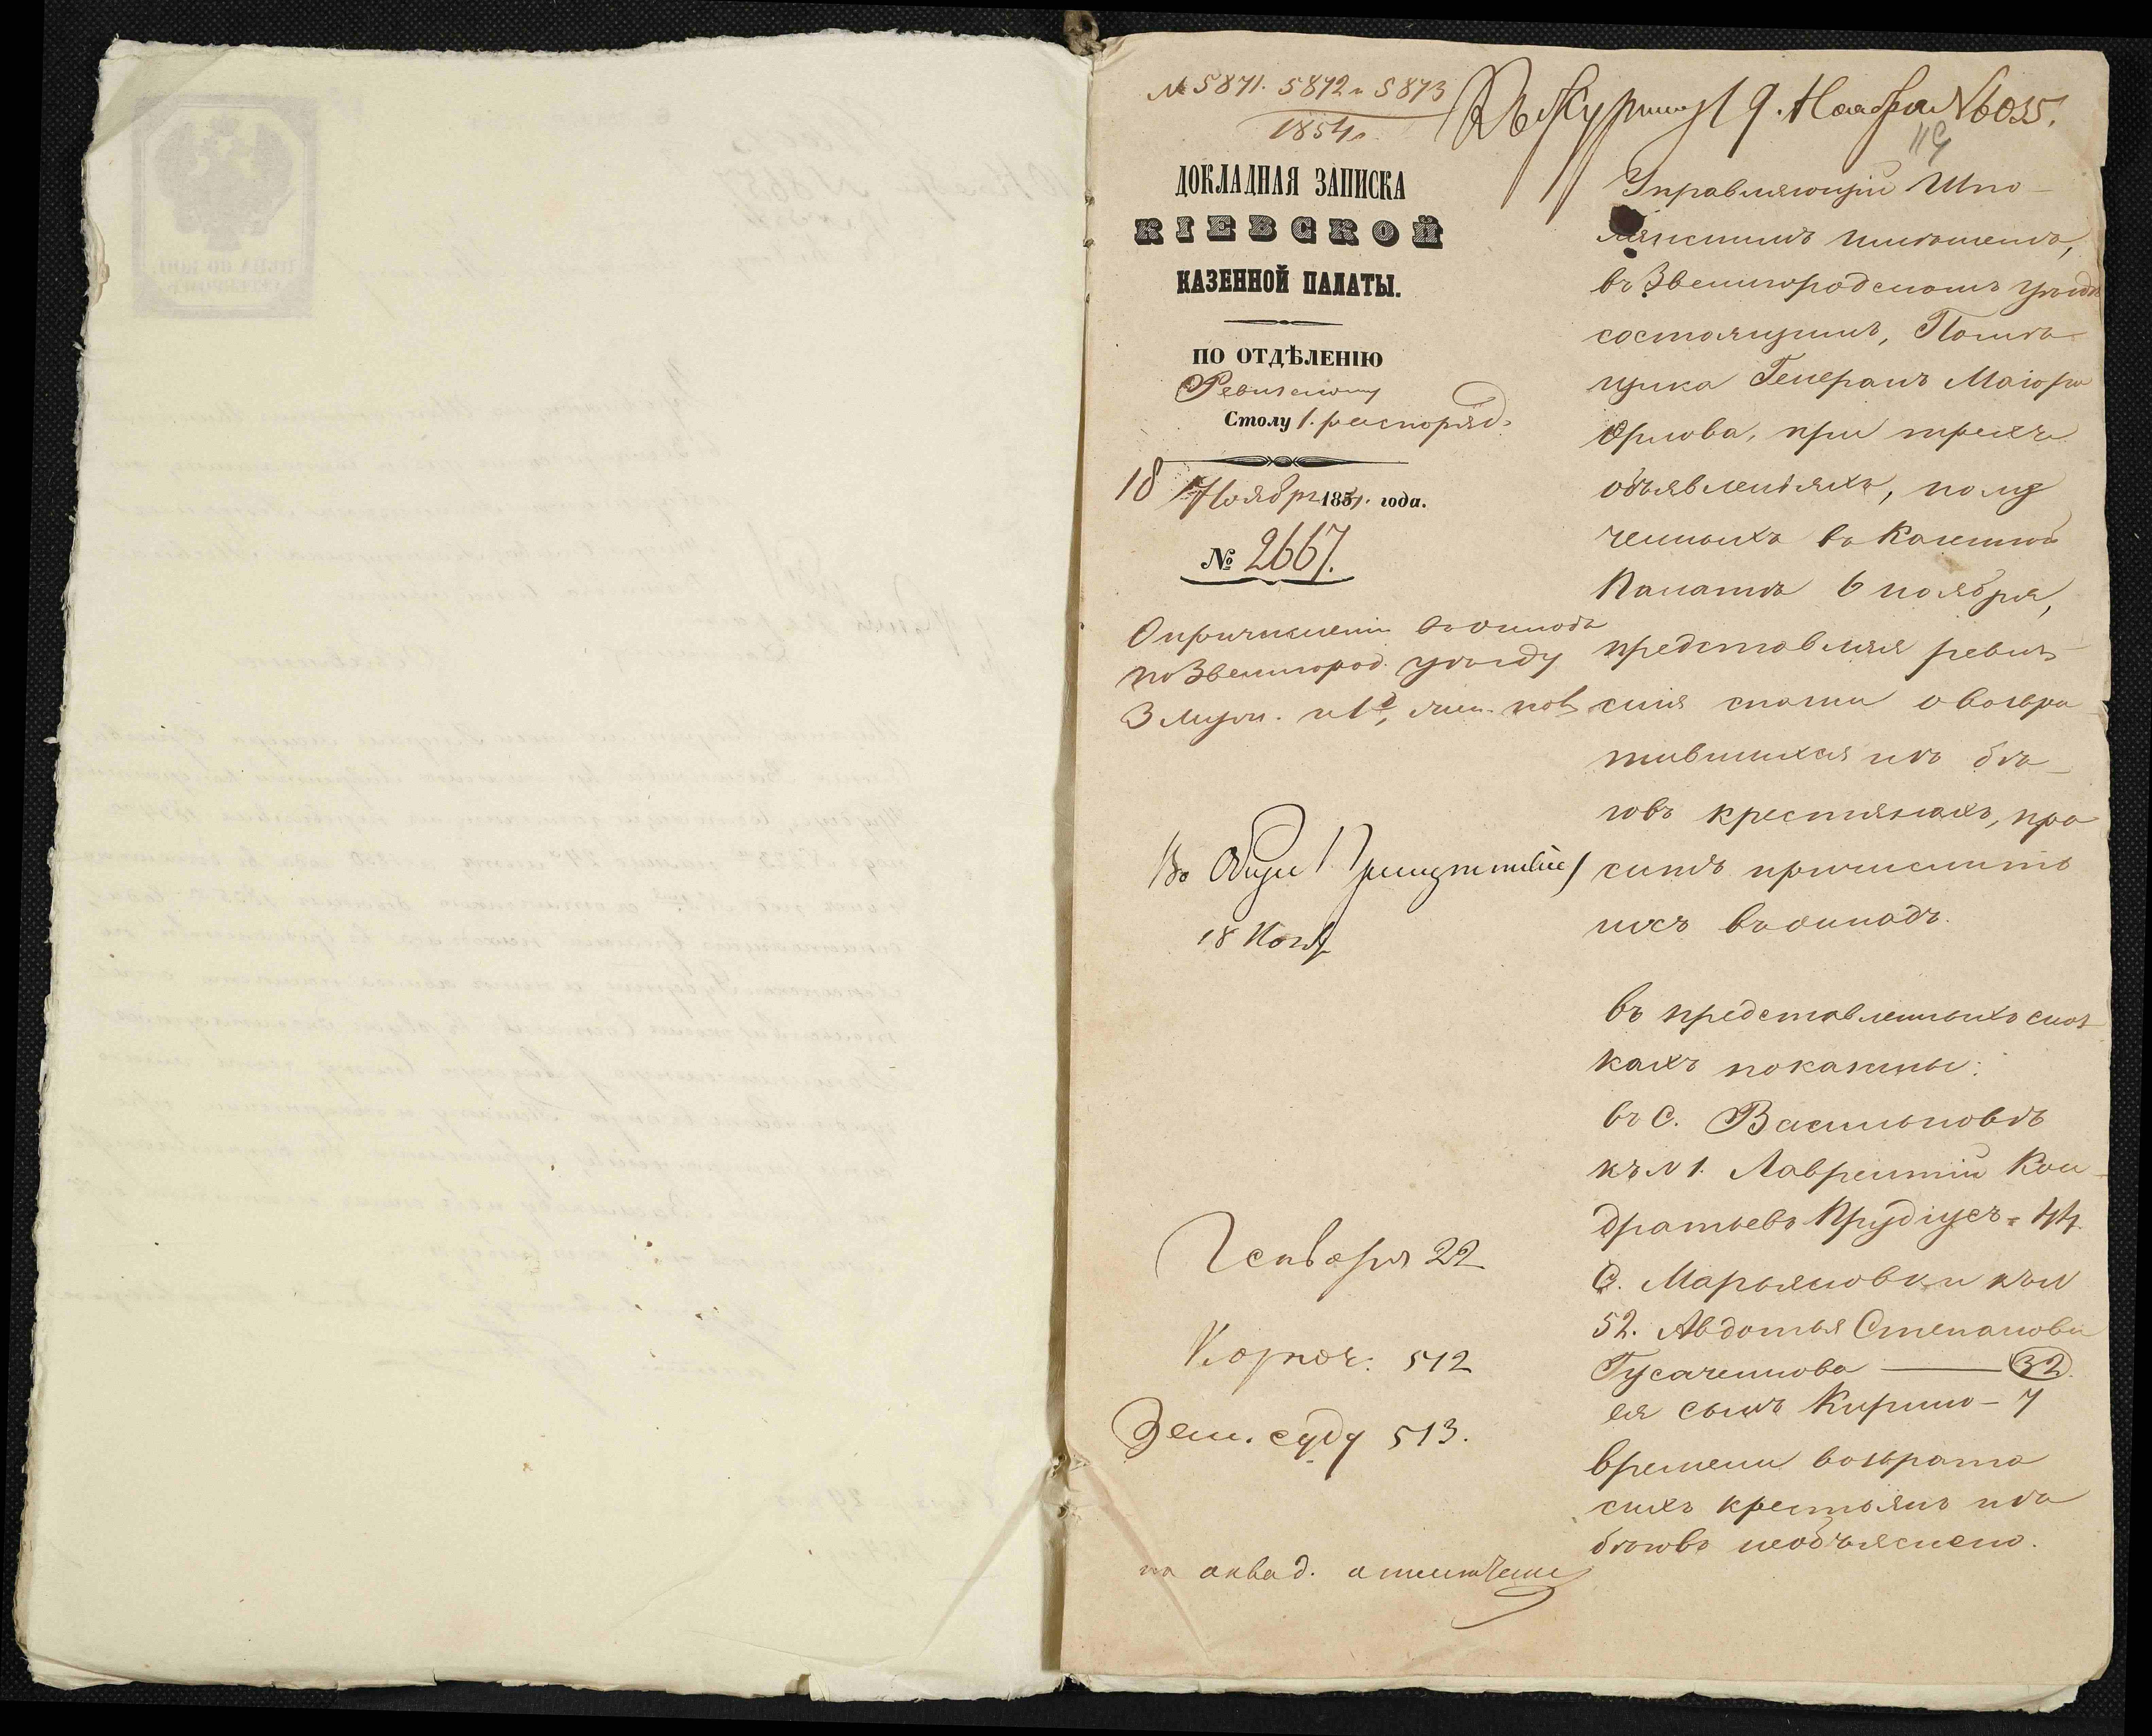 № 5871. 5872 и 5873
1854 г.
Къ журналу 19. Ноября № 6035.
119
ДОКЛАДНАЯ ЗАПИСКА
КІЕВСКОЙ
КАЗЕННОЙ ПАЛАТЫ.
ПО ОТДѢЛЕНІЮ
Ревизскому
Столу 1. распоряд.
18 Ноября 1854. года.
№ 2667.
О причисленіи въ окладъ
по Звенигород. уѣзду
3 муж. и 1й, жен. пол.
Въ Общее Присутствіе
18 Нояб
Генваря 22
512
Зем. суду 513.
Управляющій Шпо-
лянскимъ имѣніемъ,
въ Звенигородскомъ уѣздѣ
состоящимъ, Помѣ-
щика Генералъ Маіора
Орлова, при трехъ
объявленіяхъ, полу
ченныхъ въ Казенной
Палатѣ 6 ноября,
представляя ревиз-
скія сказки о возвра
тившихся изъ бѣ-
говъ крестьянахъ, про
ситъ причислить
ихъ въ окладъ.
Въ представленныхъ сказ-
кахъ показаны:
въ С. Васильковѣ
къ № 1. Лаврентій Кон-
дратьевъ Прудіусъ - 44.
С. Марьяновки къ №
52. Авдотья Степанова
Гусаченкова — 32.
ея сынъ Кирило - 7
времени возврата
сихъ крестьянъ изъ
бѣговъ необъяснено.